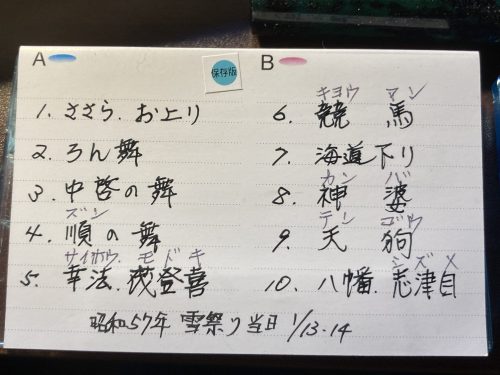 A
保存版
1. ささら. お上り
2. ろん舞
3. 中啓の舞
ズン
4. 順の舞
サイホウ モドキ
5. 幸法. 茂登喜
B
キヨウ マン
6. 競 馬
7. 海道下り
カン バ
8. 神 婆
テン ゴウ
9. 天 狗
シズメ
10. 八幡. 志津目
昭和57年 雪祭り当日 1/13-14